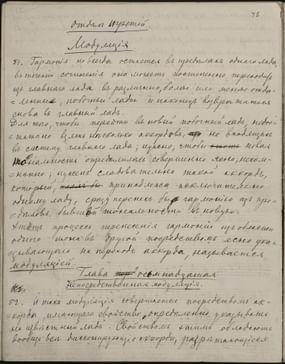 36
Отдѣлъ шестой.
Модуляція
51. Гармонія не всегда остается въ предѣлахъ одного лада,
въ теченіи сочиненія она можетъ постепенно переходить
изъ главнаго лада въ различные, болѣе или менѣе отда-
ленные, побочные лады и наконецъ возвратиться
снова въ главный ладъ.
Для того, чтобы перейти въ новый побочный ладъ, недо-
статочно взять нѣсколько аккордовъ, не входящихъ
въ систему главнаго лада; нужно, чтобы новая
тональность опредѣлилась совершенно ясно, несом-
нѣнно; нужно слѣдовательно такой аккордъ,
который, принадлежа исключительно
одному ладу, сразу перенесъ бы гармонію изъ пре-
дѣловъ бывшей тональности въ новую.
Этотъ процессъ перенесенія гармоніи изъ области
одного тона въ другой посредствомъ ясно ука-
зывающаго на переходъ аккорда, называется
модуляціей.
Глава осьмнадцатая
Непосредственная модуляція.
52. Итакъ модуляція совершается посредствомъ ак-
корда, имѣющаго свойство опредѣленно указывать
на извѣстный ладъ. Свойствомъ этимъ обладаютъ
вообще всѣ диссонирующіе аккорды, разрѣшающіеся